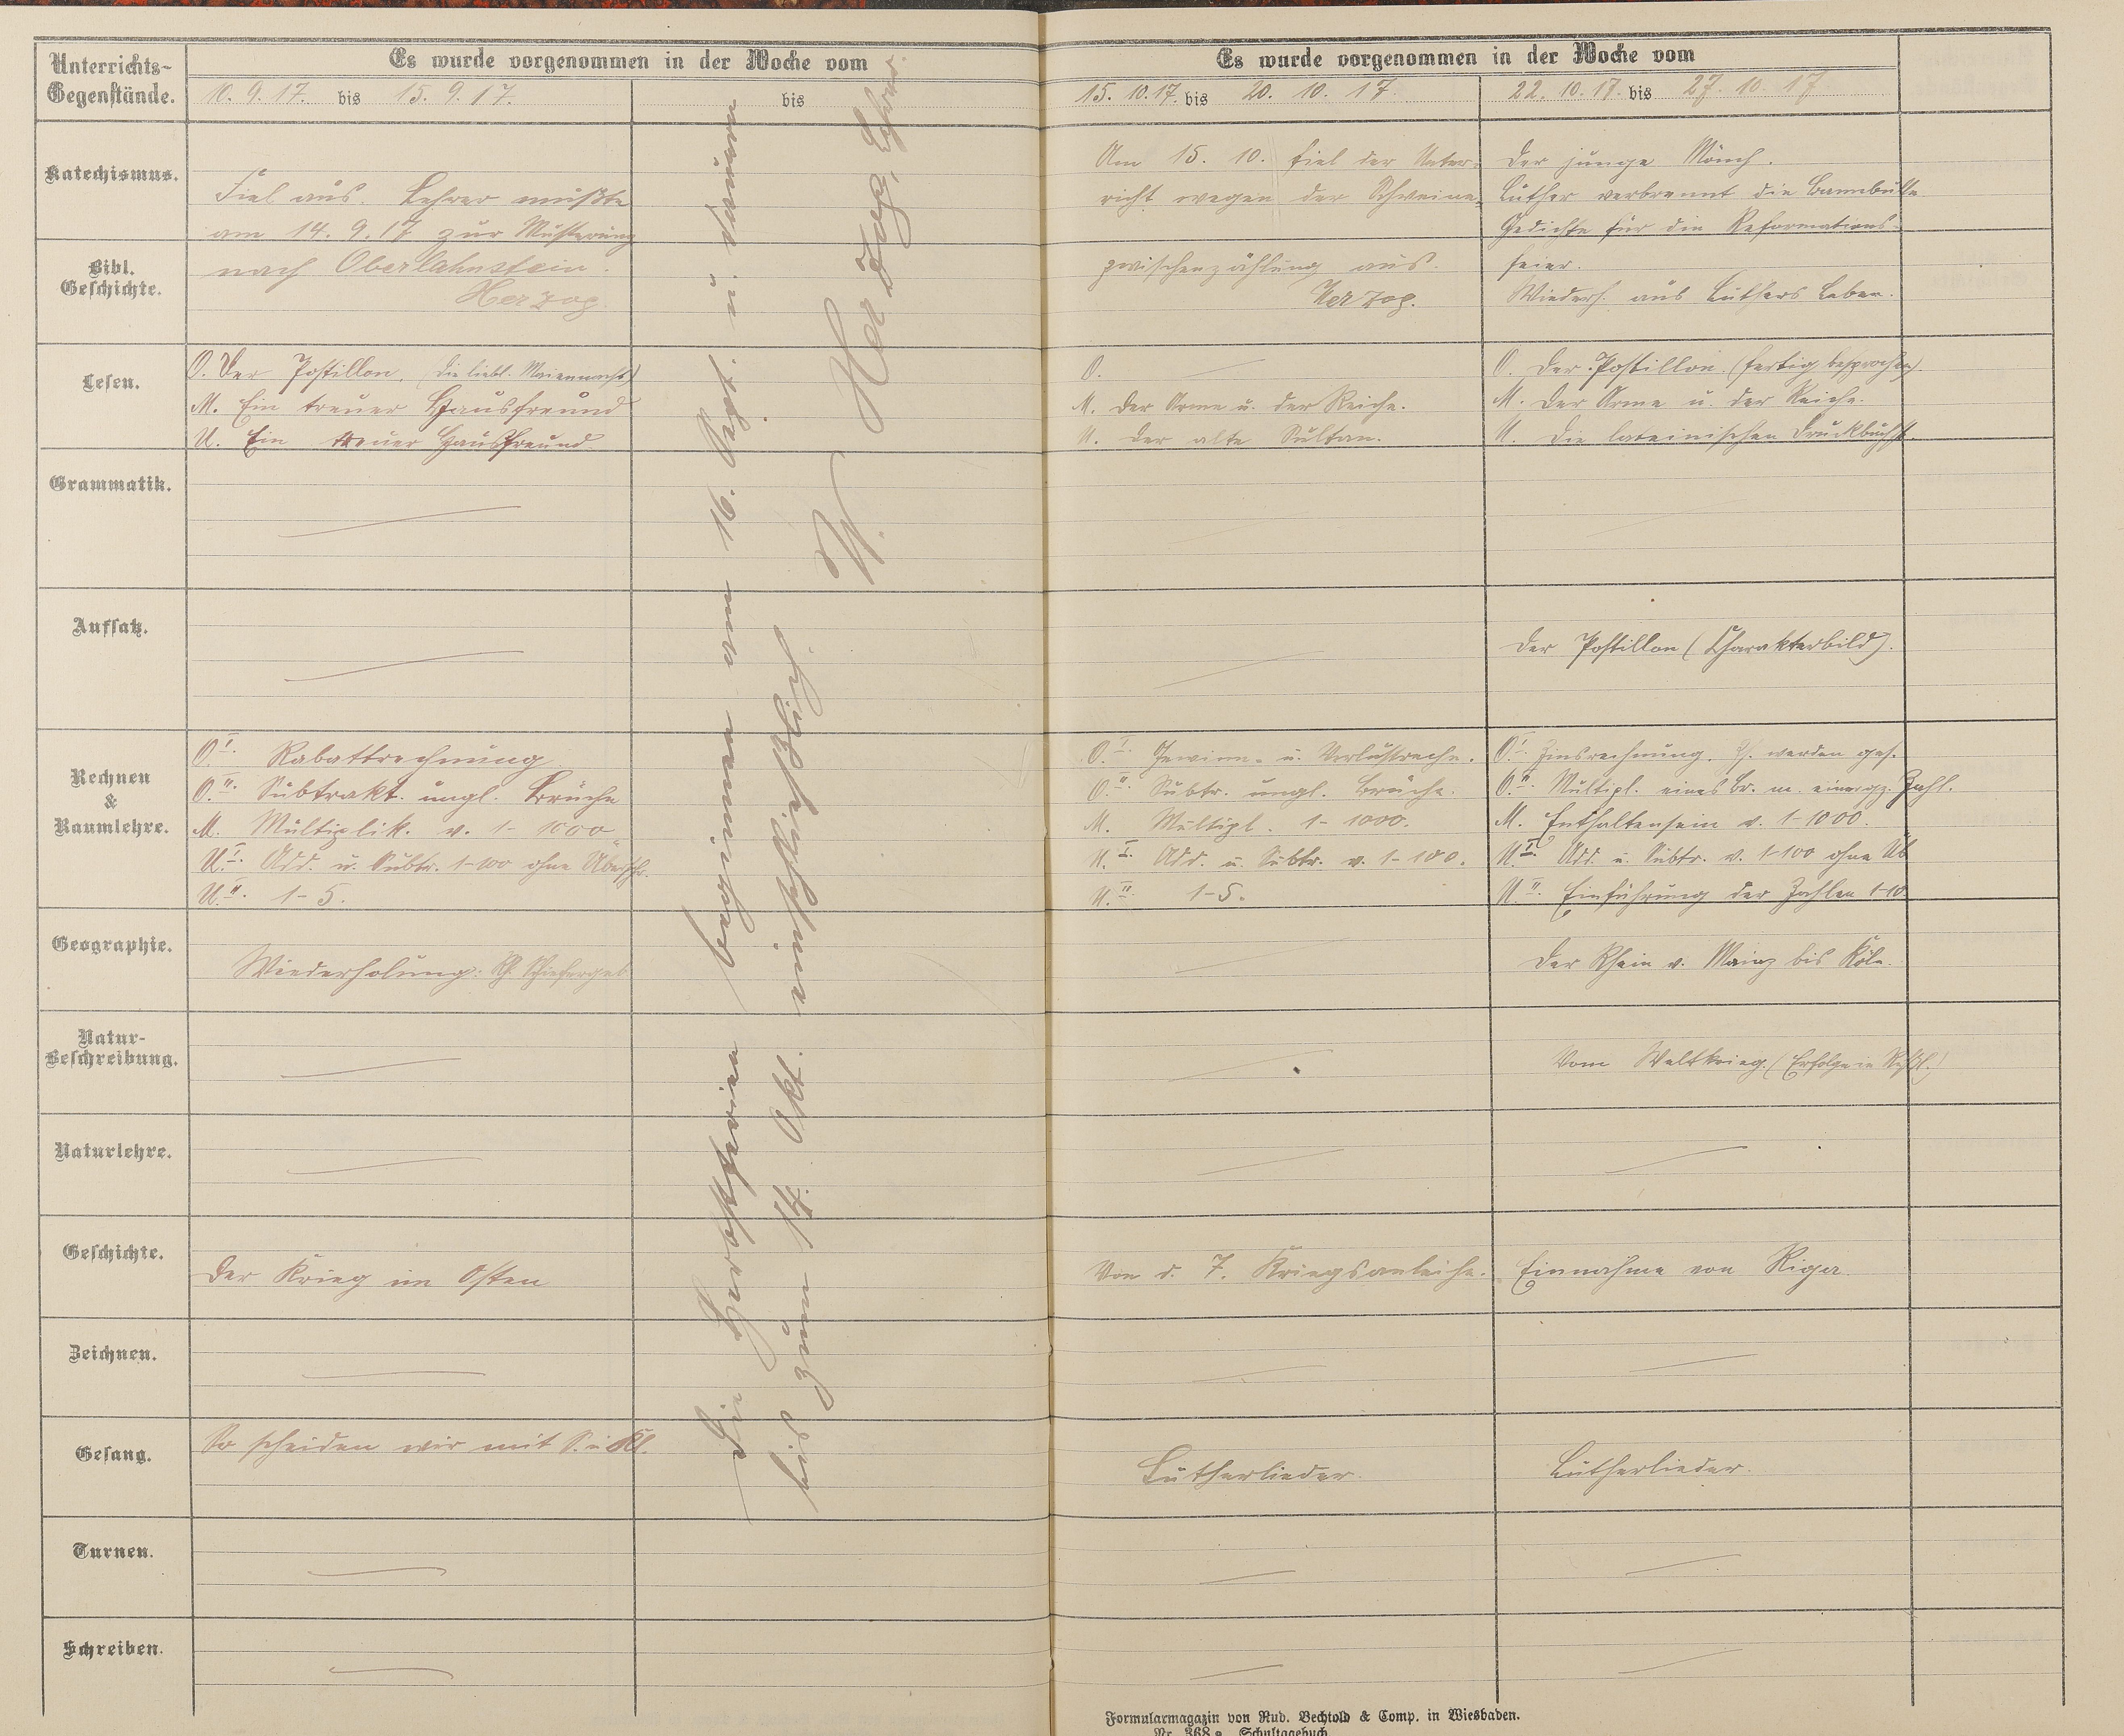 Unterrichts-
Gegenstände.
Es wurde vorgenommen in der Woche vom
10. 9. 17. bis 15. 9. 17.
bis
Es wurde vorgenommen in der Woche vom
15. 10. 17. bis 20. 10. 17.
22. 10. 17. bis 27. 10. 17
Katechismus.
Fiel aus. Lehrer mußte
am 14. 9. 17 zur Musterung
Am 15. 10. fiel der Unter-
richt wegen der Schweine-
Der junge Mönch.
Luther verbrennt die Bannbulle
Gedichte für die Reformations-
Bibl.
Geschichte.
nach Oberlahnstein.
Herzog.
zwischenzählung aus.
Herzog.
feier.
Wiederh. aus Luthers Leben.
Lesen.
O. Der Postillon. (Die liebl. Maiennacht)
M. Ein treuer Hausfreund
U. Ein treuer Hausfreund
O.
M. Der Arme u. der Reiche.
U. Der alte Sultan.
O. Der Postillon. (fertig besprochen).
M. Der Arme u. der Reiche.
U. Die lateinischen Druckbuchst
Grammatik.
Aufsatz.
Der Postillon (Charakterbild).
Rechnen
&
Raumlehre.
O.I. Rabattrechnung
O.II. Subtrakt. ungl. Brüche
M. Multiplik. v. 1-1000
U.I. Add. u. Subtr. 1-100 ohne Überschr.
U.II. 1-5.
O.I. Gewinn- u. Verlustrechn.
O.II. Subtr. ungl. Brüche.
M. Multipl. 1-1000.
U.I. Add. u. Subtr. v. 1-100.
U.II. 1-5.
O.I. Zinsrechnung. werden ges.
O.II. Multipl. eines Br. m. einer gz. Zahl.
M. Enthaltensein v. 1-1000.
U.I. Add. u. Subtr. v. 1-100 ohne Üb
U.II. Einführung der Zahlen 1-10
Geographie.
Wiederholung: Rh. Schiefergeb.
Der Rhein v. Mainz bis Köln.
Natur-
Beschreibung.
Vom Weltkrieg. (Erfolge in
Naturlehre.
Geschichte.
Der Krieg im Osten
Von d. 7. Kriegsanleihe.
Einnahme von Riga.
Zeichnen.
Gesang.
So scheiden wir mit S. u. Kl.
Lutherlieder.
Lutherlieder.
Turnen.
Schreiben.
Die Herbstferien beginnen am 16. Sept. u. dauern
bis zum 14. Okt. einschließlich.
W. Herzog, Lehrer.
Formularmagazin von Rud. Bechtold & Comp. in Wiesbaden.
Nr. 368 a. Schultagebuch